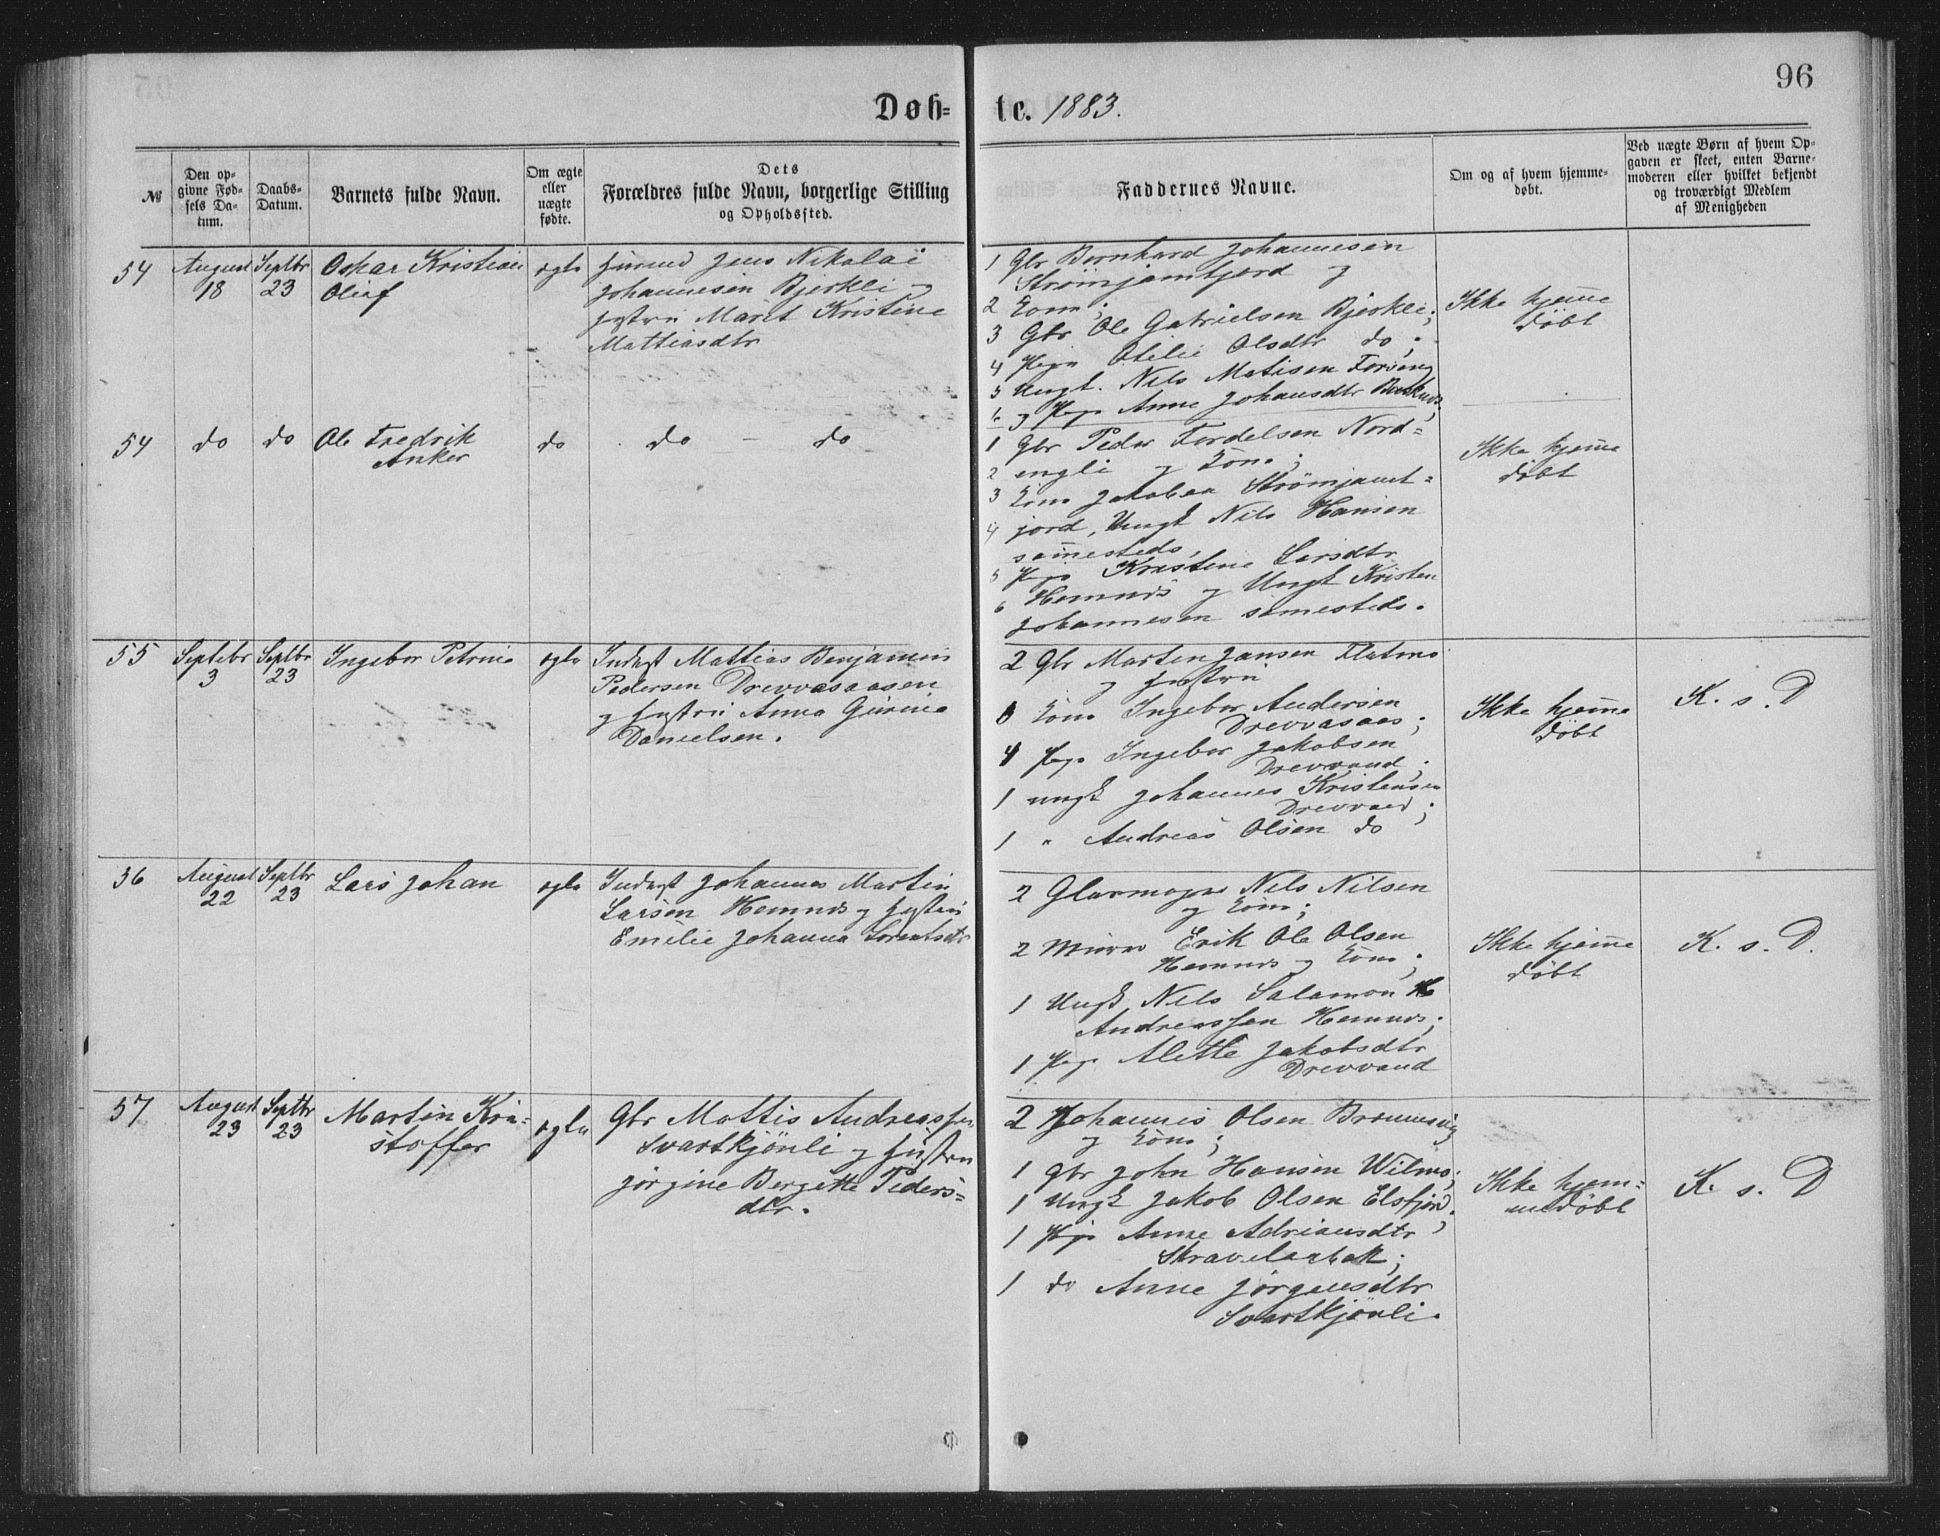 96
Døb=
te. 1883.
№
Den op-
givne Fød-
sels Da-
tum.
Daabs-
Datum.
Barnets fulde Navn.
Om ægte
eller
uægte
fødte.
Dets
Forældres fulde Navn, borgerlige Stilling
og Opholdssted.
Faddernes Navne.
Om og af hvem hjemme-
døbt.
Ved uægte Børn af hvem Op-
gaven er skeet, enten Barne-
moderen eller hvilket bekjendt
og troværdigt Medlem
af Menigheden
54
August
18
Septbr
23
Oskar Kristian
Olief
ægte
Jens Nikolai
Johannesen Bjerkli og
Hustru Marit Kristine
Mattiasdtr
1 Gbr Bernhard Johannesen
Strømjamtjord og
2 Kone;
3 Gbr Ole Gabrielsen Bjerkli;
4 Pige Otilie Olsdtr do;
5 Ungk. Nils Matisen Forneng
6 og Pige Anne Johansdtr
Ikke hjem̄e
døbt
54
do
do
Ole Fredrik
Anker
do
do - do
1 Gbr Peder Fordelsen Nord=
2 engli og Kone;
3 Kone Jakobea Strømjamt=
4 jord, Ungk Nils Hansen
sam̄esteds,
5 Pige Kristine Larsdtr
6 Hemnes og Ungk Kristen
Johannesen samesteds.
Ikke hjem̄e
døbt
55
Septebr
3
Septbr
23
Ingebor Petrine
ægte
Inderst Mattias Benjamin
Pedersen Drevvasaasen
og Hustru Anna Gurine
Danielsen.
2 Gbr Marten Jansen Flatmo
og Hustru
Kone Ingebor Andersen
Drevvasaas;
Pige Ingebor Jakobsen
Drevvand;
1 ungk Johannes Kristensen
Drevvand;
1 " Andreas Olsen do
Ikke hjem̄e
døbt
K. s. D
56
August
22
Septbr
23
Lars Johan
ægte
Inderst Johannes Martin
Larsen Hemnes og Hustru
Emelie Johanna Lorentsdtr
2 Glarmager Nils Nilsen
og Kone;
2 Murer Erik Ole Olsen
Hemnes og Kone;
1 Ungk Nils Salamon
Andreassen Hemnes;
1 Pige Alette Jakobsdtr
Drevvand
Ikke hjem̄e
døbt
K. s. D.
57
August
23
Septbr
23
Martin Kri=
stoffer
ægte
Gbr Mattis Andreassen
Svartkjönli og Hustru
Jörgine Bergitte Peders=
dtr.
2 Johannes Olsen Brennesvig
og Kone;
1 Gbr John Hansen Wilmo;
1 Ungk Jakob Olsen Elsfjord;
1 Pige Anne Adriansdtr
Skravelaabak;
1 do Anne Jörgensdtr
Svartkjönli.
Ikke hjem=
medöbt
K. s. D